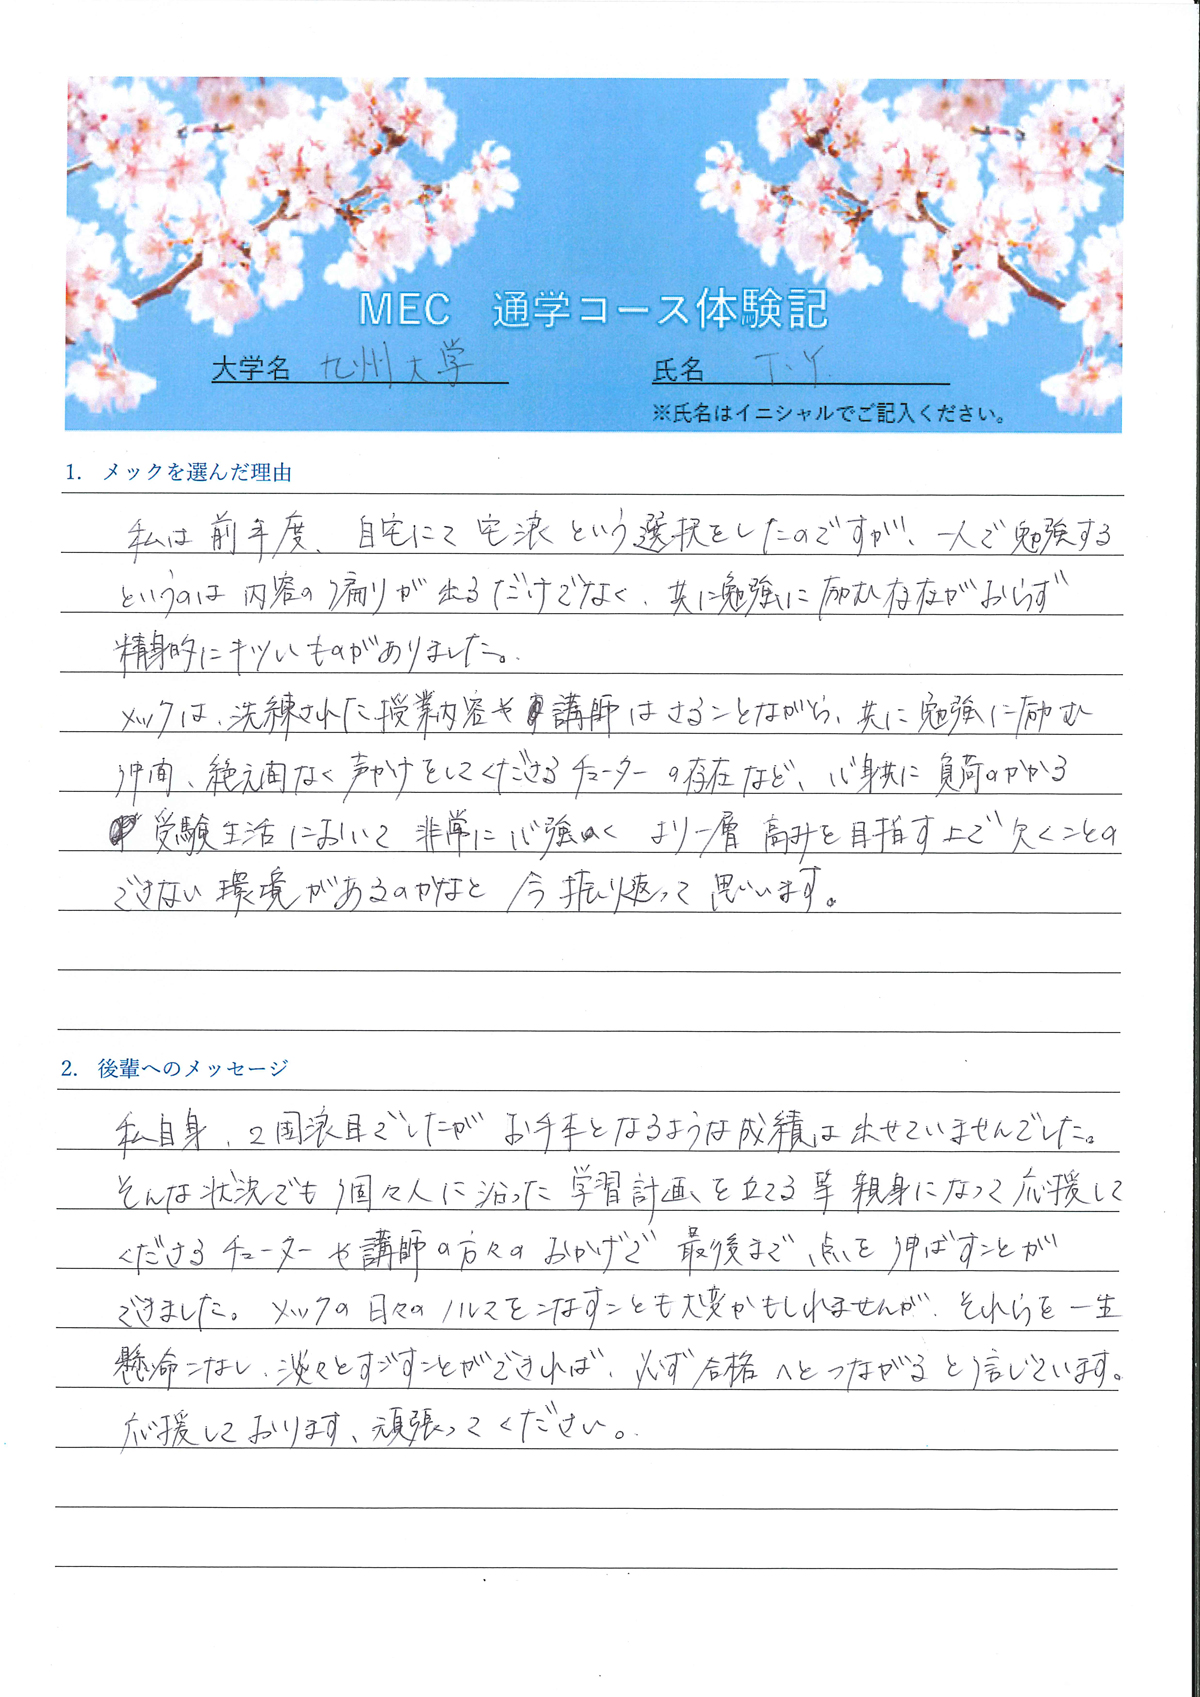 MEC 通学コース体験記
大学名 九州大学 氏名 T.Y.
※氏名はイニシャルでご記入ください。
1. メックを選んだ理由
私は前年度、自宅にて宅浪という選択をしたのですが、一人で勉強する
というのは内容の偏りが出るだけでなく、共に勉強に励む存在がおらず
精身的にキツいものがありました。
メックは、洗練された授業内容や講師はさることながら、共に勉強に励む
仲間、絶え間なく声かけをしてくださるチューターの存在など、心身共に負荷のかかる
受験生活において非常に心強くより一層高みを目指す上で欠くことの
できない環境があるのかなと今振り返って思います。
2. 後輩へのメッセージ
私自身、2国浪目でしたがお手本となるような成績は出せていませんでした。
そんな状況でも個々人に沿った学習計画を立てる等親身になって応援して
くださるチューターや講師の方々のおかげで最後まで点を伸ばすことが
できました。メックの日々のノルマをこなすことも大変かもしれませんが、それらを一生
懸命こなし、淡々とすごすことができれば、必ず合格へとつながると信じています。
応援しております、頑張ってください。